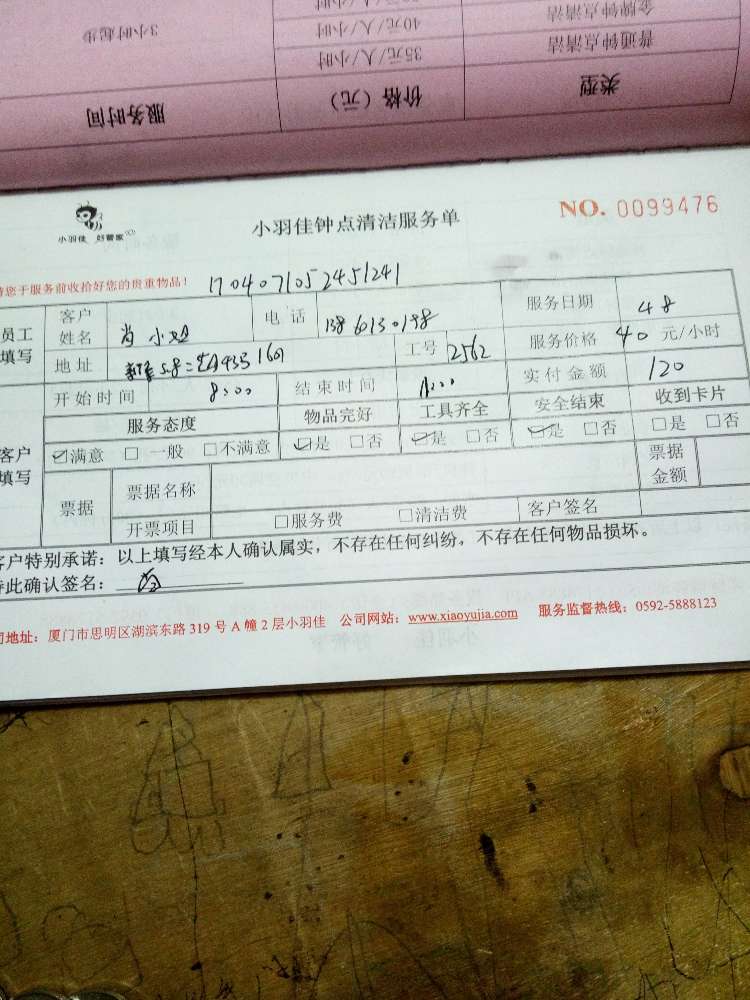 金牌钟点清洁 40元/人/小时 3小时起步
普通钟点清洁 35元/人/小时
类型 价格（元） 服务时间
小羽佳 好管家
小羽佳钟点清洁服务单
NO. 0099476
请您于服务前收拾好您的贵重物品！
1704071052451241
员工填写
客户姓名 肖小姐 电话 13860130198 服务日期 4 8
地址 工号 2562 服务价格 40 元/小时
开始时间 8:00 结束时间 11:00 实付金额 120
客户填写
服务态度 物品完好 工具齐全 安全结束 收到卡片
☑满意 □一般 □不满意 ☑是 □否 ☑是 □否 ☑是 □否 □是 □否
票据 票据名称 票据金额
开票项目 □服务费 □清洁费 客户签名
客户特别承诺：以上填写经本人确认属实，不存在任何纠纷，不存在任何物品损坏。
特此确认签名：
司地址：厦门市思明区湖滨东路 319 号 A 幢 2 层小羽佳 公司网站：www.xiaoyujia.com 服务监督热线：0592-5888123